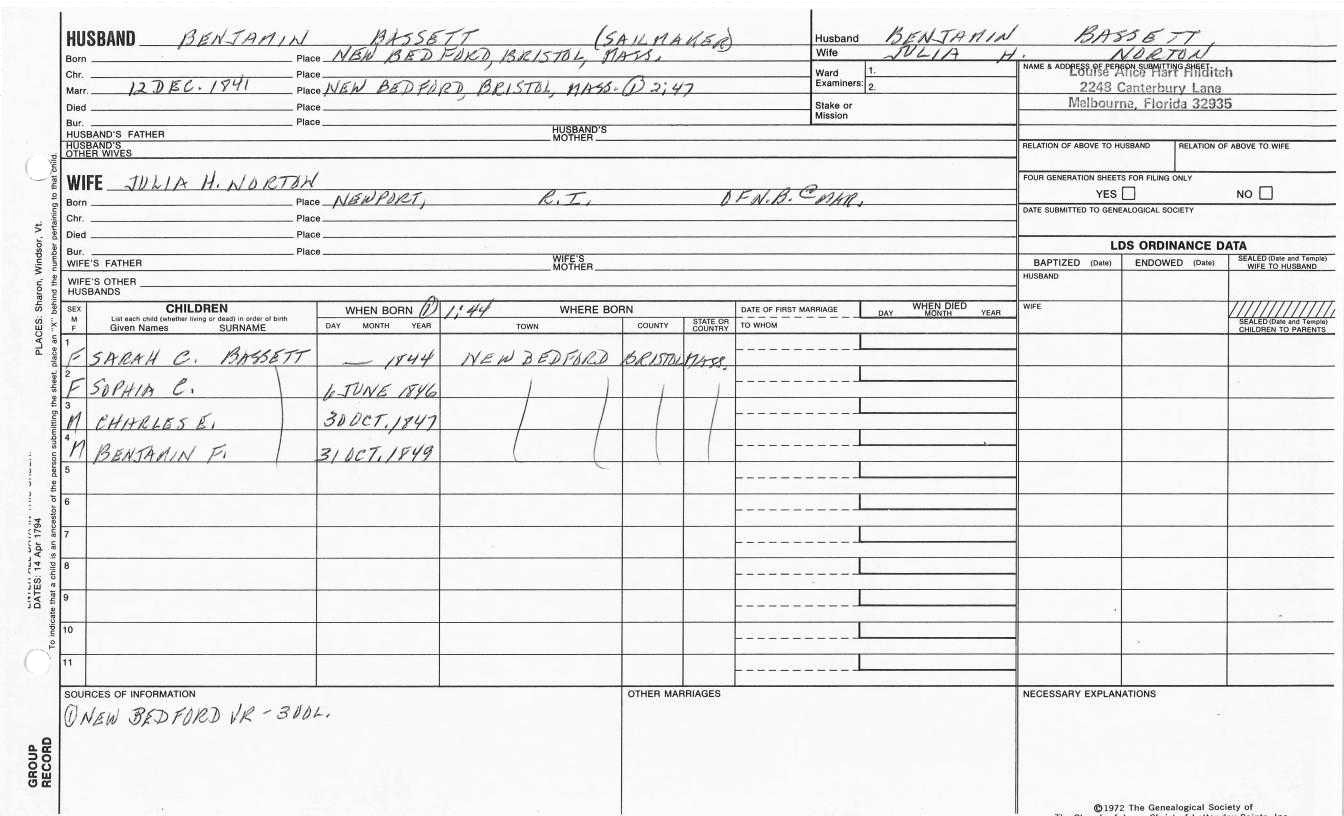 HUSBAND BENJAMIN BASSETT (SAILMAKER)
Born Place NEW BEDFORD, BRISTOL, MASS.
Chr. Place
Marr. 12 DEC. 1841 Place NEW BEDFORD, BRISTOL, MASS. ① 2;47
Died Place
Bur. Place
HUSBAND'S FATHER HUSBAND'S MOTHER
HUSBAND'S OTHER WIVES
Husband BENJAMIN BASSETT
Wife JULIA H. NORTON
Ward Examiners: 1.
2.
Stake or Mission
NAME & ADDRESS OF PERSON SUBMITTING SHEET
Louise Alice Hart Hilditch
2248 Canterbury Lane
Melbourne, Florida 32935
RELATION OF ABOVE TO HUSBAND RELATION OF ABOVE TO WIFE
FOUR GENERATION SHEETS FOR FILING ONLY
YES NO
DATE SUBMITTED TO GENEALOGICAL SOCIETY
WIFE JULIA H. NORTON
Born Place NEWPORT, R.I. OF N.B. @ MAR.
Chr. Place
Died Place
Bur. Place
WIFE'S FATHER WIFE'S MOTHER
WIFE'S OTHER HUSBANDS
LDS ORDINANCE DATA
BAPTIZED (Date) ENDOWED (Date) SEALED (Date and Temple) WIFE TO HUSBAND
HUSBAND
WIFE
SEALED (Date and Temple) CHILDREN TO PARENTS
SEX M F
CHILDREN
List each child (whether living or dead) in order of birth
Given Names SURNAME
WHEN BORN ① 1;44
DAY MONTH YEAR
WHERE BORN
TOWN COUNTY STATE OR COUNTRY
DATE OF FIRST MARRIAGE
TO WHOM
WHEN DIED
DAY MONTH YEAR
1 F SARAH C. BASSETT — 1844 NEW BEDFORD BRISTOL MASS.
2 F SOPHIA C. 6 JUNE 1846
3 M CHARLES E. 30 OCT. 1847
4 M BENJAMIN F. 31 OCT. 1849
5
6
7
8
9
10
11
SOURCES OF INFORMATION
① NEW BEDFORD VR - 3 VOL.
OTHER MARRIAGES
NECESSARY EXPLANATIONS
©1972 The Genealogical Society of
PLACES: Sharon, Windsor, Vt.
DATES: 14 Apr 1794
To indicate that a child is an ancestor of the person submitting the sheet, place an "X" behind the number pertaining to that child.
GROUP RECORD